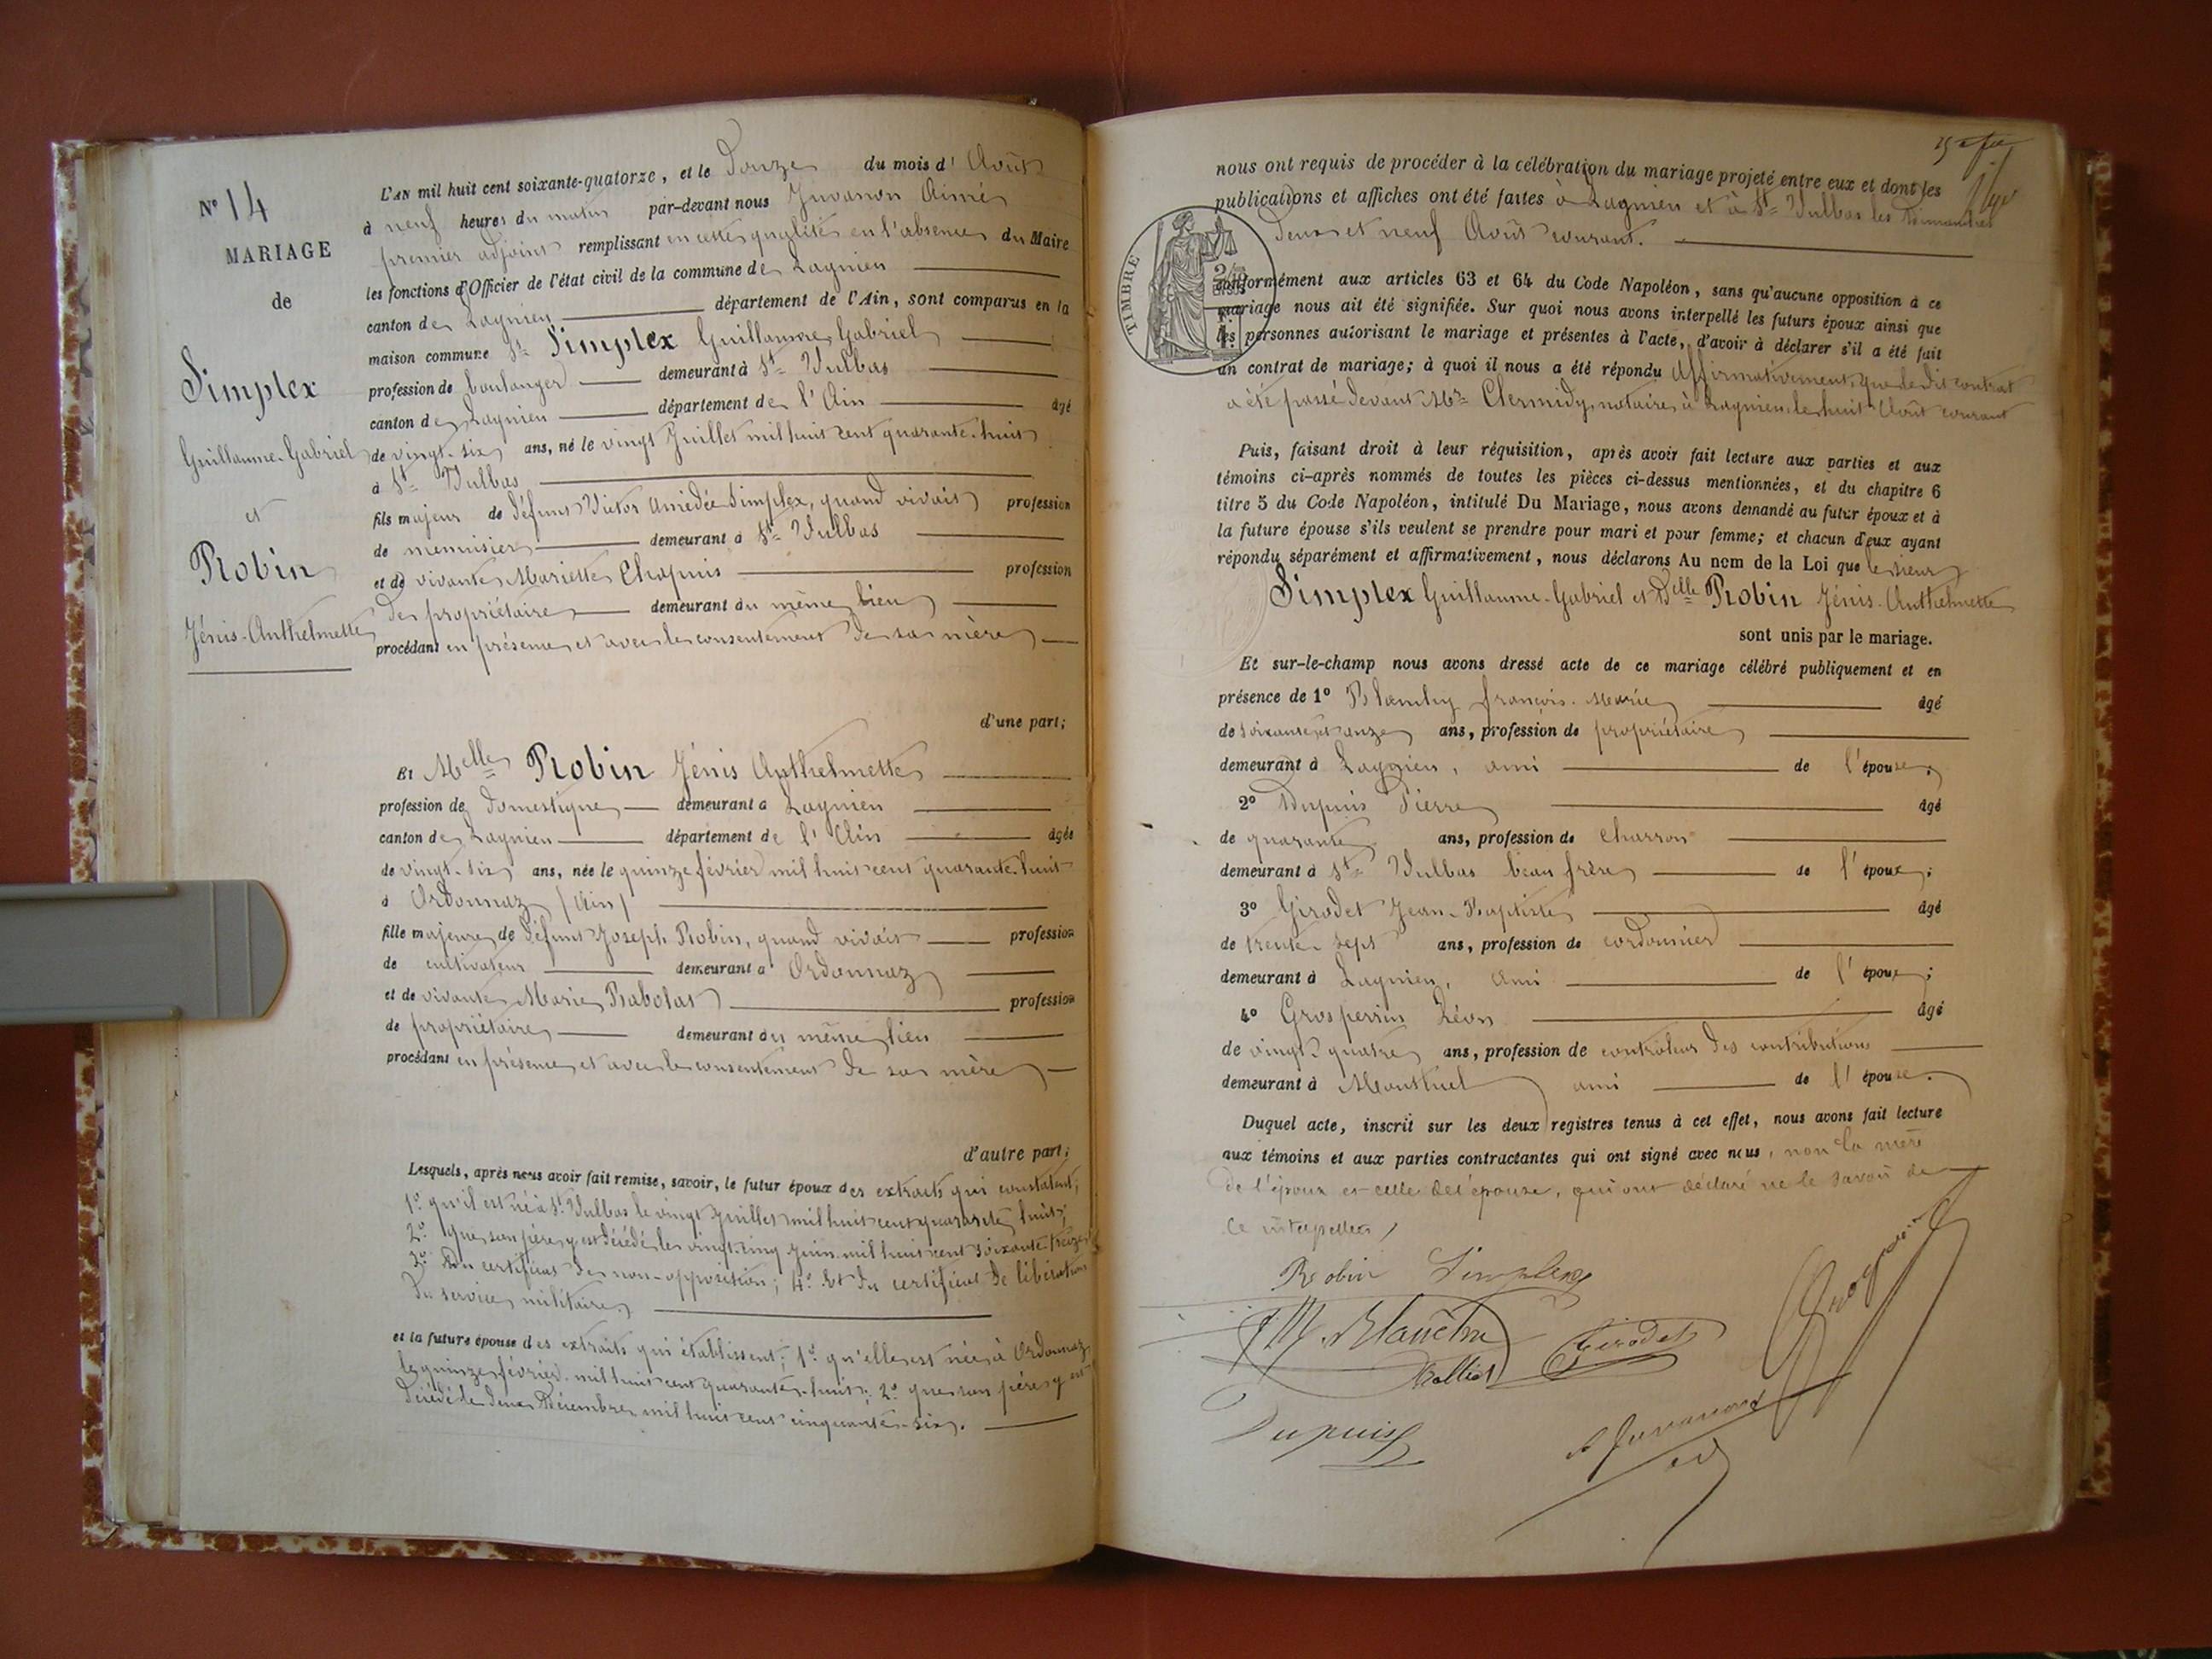 N° 14
MARIAGE
de
Simplex
Guillaume-Gabriel
et
Robin
Jénis-Anthelmette
L'AN mil huit cent soixante-quatorze, et le Douze du mois d'Août
à neuf heures du matin par-devant nous Juvanon Aimé
premier adjoint remplissant en cette qualité en l'absence du Maire
les fonctions d'Officier de l'état civil de la commune de Lagnieu
canton de Lagnieu département de l'Ain, sont comparus en la
maison commune Sr Simplex Guillaume Gabriel
profession de boulanger demeurant à St Vulbas
canton de Lagnieu département de l'Ain âgé
de vingt-six ans, né le vingt Juillet mil huit cent quarante-huit
à St Vulbas
fils majeur de défunt Victor Amédée Simplex, quand vivait profession
de menuisier demeurant à St Vulbas
et de vivante Mariette Chapuis profession
de propriétaire demeurant au même lieu
procédant en présence et avec le consentement de sa mère
d'une part;
Et Melle Robin Jénis Anthelmette
profession de domestique demeurant à Lagnieu
canton de Lagnieu département de l'Ain âgée
de vingt-six ans, née le quinze février mil huit cent quarante-huit
à Ordonnaz (Ain)
fille majeure de défunt Joseph Robin, quand vivait profession
de cultivateur demeurant à Ordonnaz
et de vivante Marie Rabolat profession
de propriétaire demeurant au même lieu
procédant en présence et avec le consentement de sa mère
d'autre part;
Lesquels, après nous avoir fait remise, savoir, le futur époux des extraits qui constatent;
1° qu'il est né à St Vulbas le vingt Juillet mil huit cent quarante huit;
2° Que son père y est décédé le vingt-cinq Juin mil huit cent soixante-treize;
3° Du certificat de non-opposition; 4° Et du certificat de libération
du service militaire
et la future épouse des extraits qui établissent; 1° qu'elle est née à Ordonnaz
le quinze février mil huit cent quarante-huit; 2° que son père y est
décédé le deux Décembre mil huit cent cinquante-six.
nous ont requis de procéder à la célébration du mariage projeté entre eux et dont les
publications et affiches ont été faites à Lagnieu et à St Vulbas les Dimanches
deux et neuf Août courant.
TIMBRE
conformément aux articles 63 et 64 du Code Napoléon, sans qu'aucune opposition à ce
mariage nous ait été signifiée. Sur quoi nous avons interpellé les futurs époux ainsi que
les personnes autorisant le mariage et présentes à l'acte, d'avoir à déclarer s'il a été fait
un contrat de mariage; à quoi il nous a été répondu Affirmativement, que ledit contrat
a été passé devant Me Clermidy, notaire à Lagnieu le huit Août courant
Puis, faisant droit à leur réquisition, après avoir fait lecture aux parties et aux
témoins ci-après nommés de toutes les pièces ci-dessus mentionnées, et du chapitre 6
titre 5 du Code Napoléon, intitulé Du Mariage, nous avons demandé au futur époux et à
la future épouse s'ils veulent se prendre pour mari et pour femme; et chacun d'eux ayant
répondu séparément et affirmativement, nous déclarons Au nom de la Loi que le sieur
Simplex Guillaume-Gabriel et Delle Robin Jénis-Anthelmette
sont unis par le mariage.
Et sur-le-champ nous avons dressé acte de ce mariage célébré publiquement et en
présence de 1° Blanchy françois-Marie âgé
de soixante et onze ans, profession de propriétaire
demeurant à Lagnieu, ami de l'épouse;
2° Dupuis Pierre âgé
de quarante ans, profession de charron
demeurant à St Vulbas beau frère de l'époux;
3° Girodet Jean-Baptiste âgé
de trente-sept ans, profession de cordonnier
demeurant à Lagnieu, ami de l'époux;
4° Grosperrin Léon âgé
de vingt-quatre ans, profession de contrôleur des contributions
demeurant à Montluel ami de l'épouse.
Duquel acte, inscrit sur les deux registres tenus à cet effet, nous avons fait lecture
aux témoins et aux parties contractantes qui ont signé avec nous, non la mère
de l'époux et celle de l'épouse, qui ont déclaré ne le savoir de
ce interpellées,
Robin Simplex
Girodet
Dupuis
A Juvanon